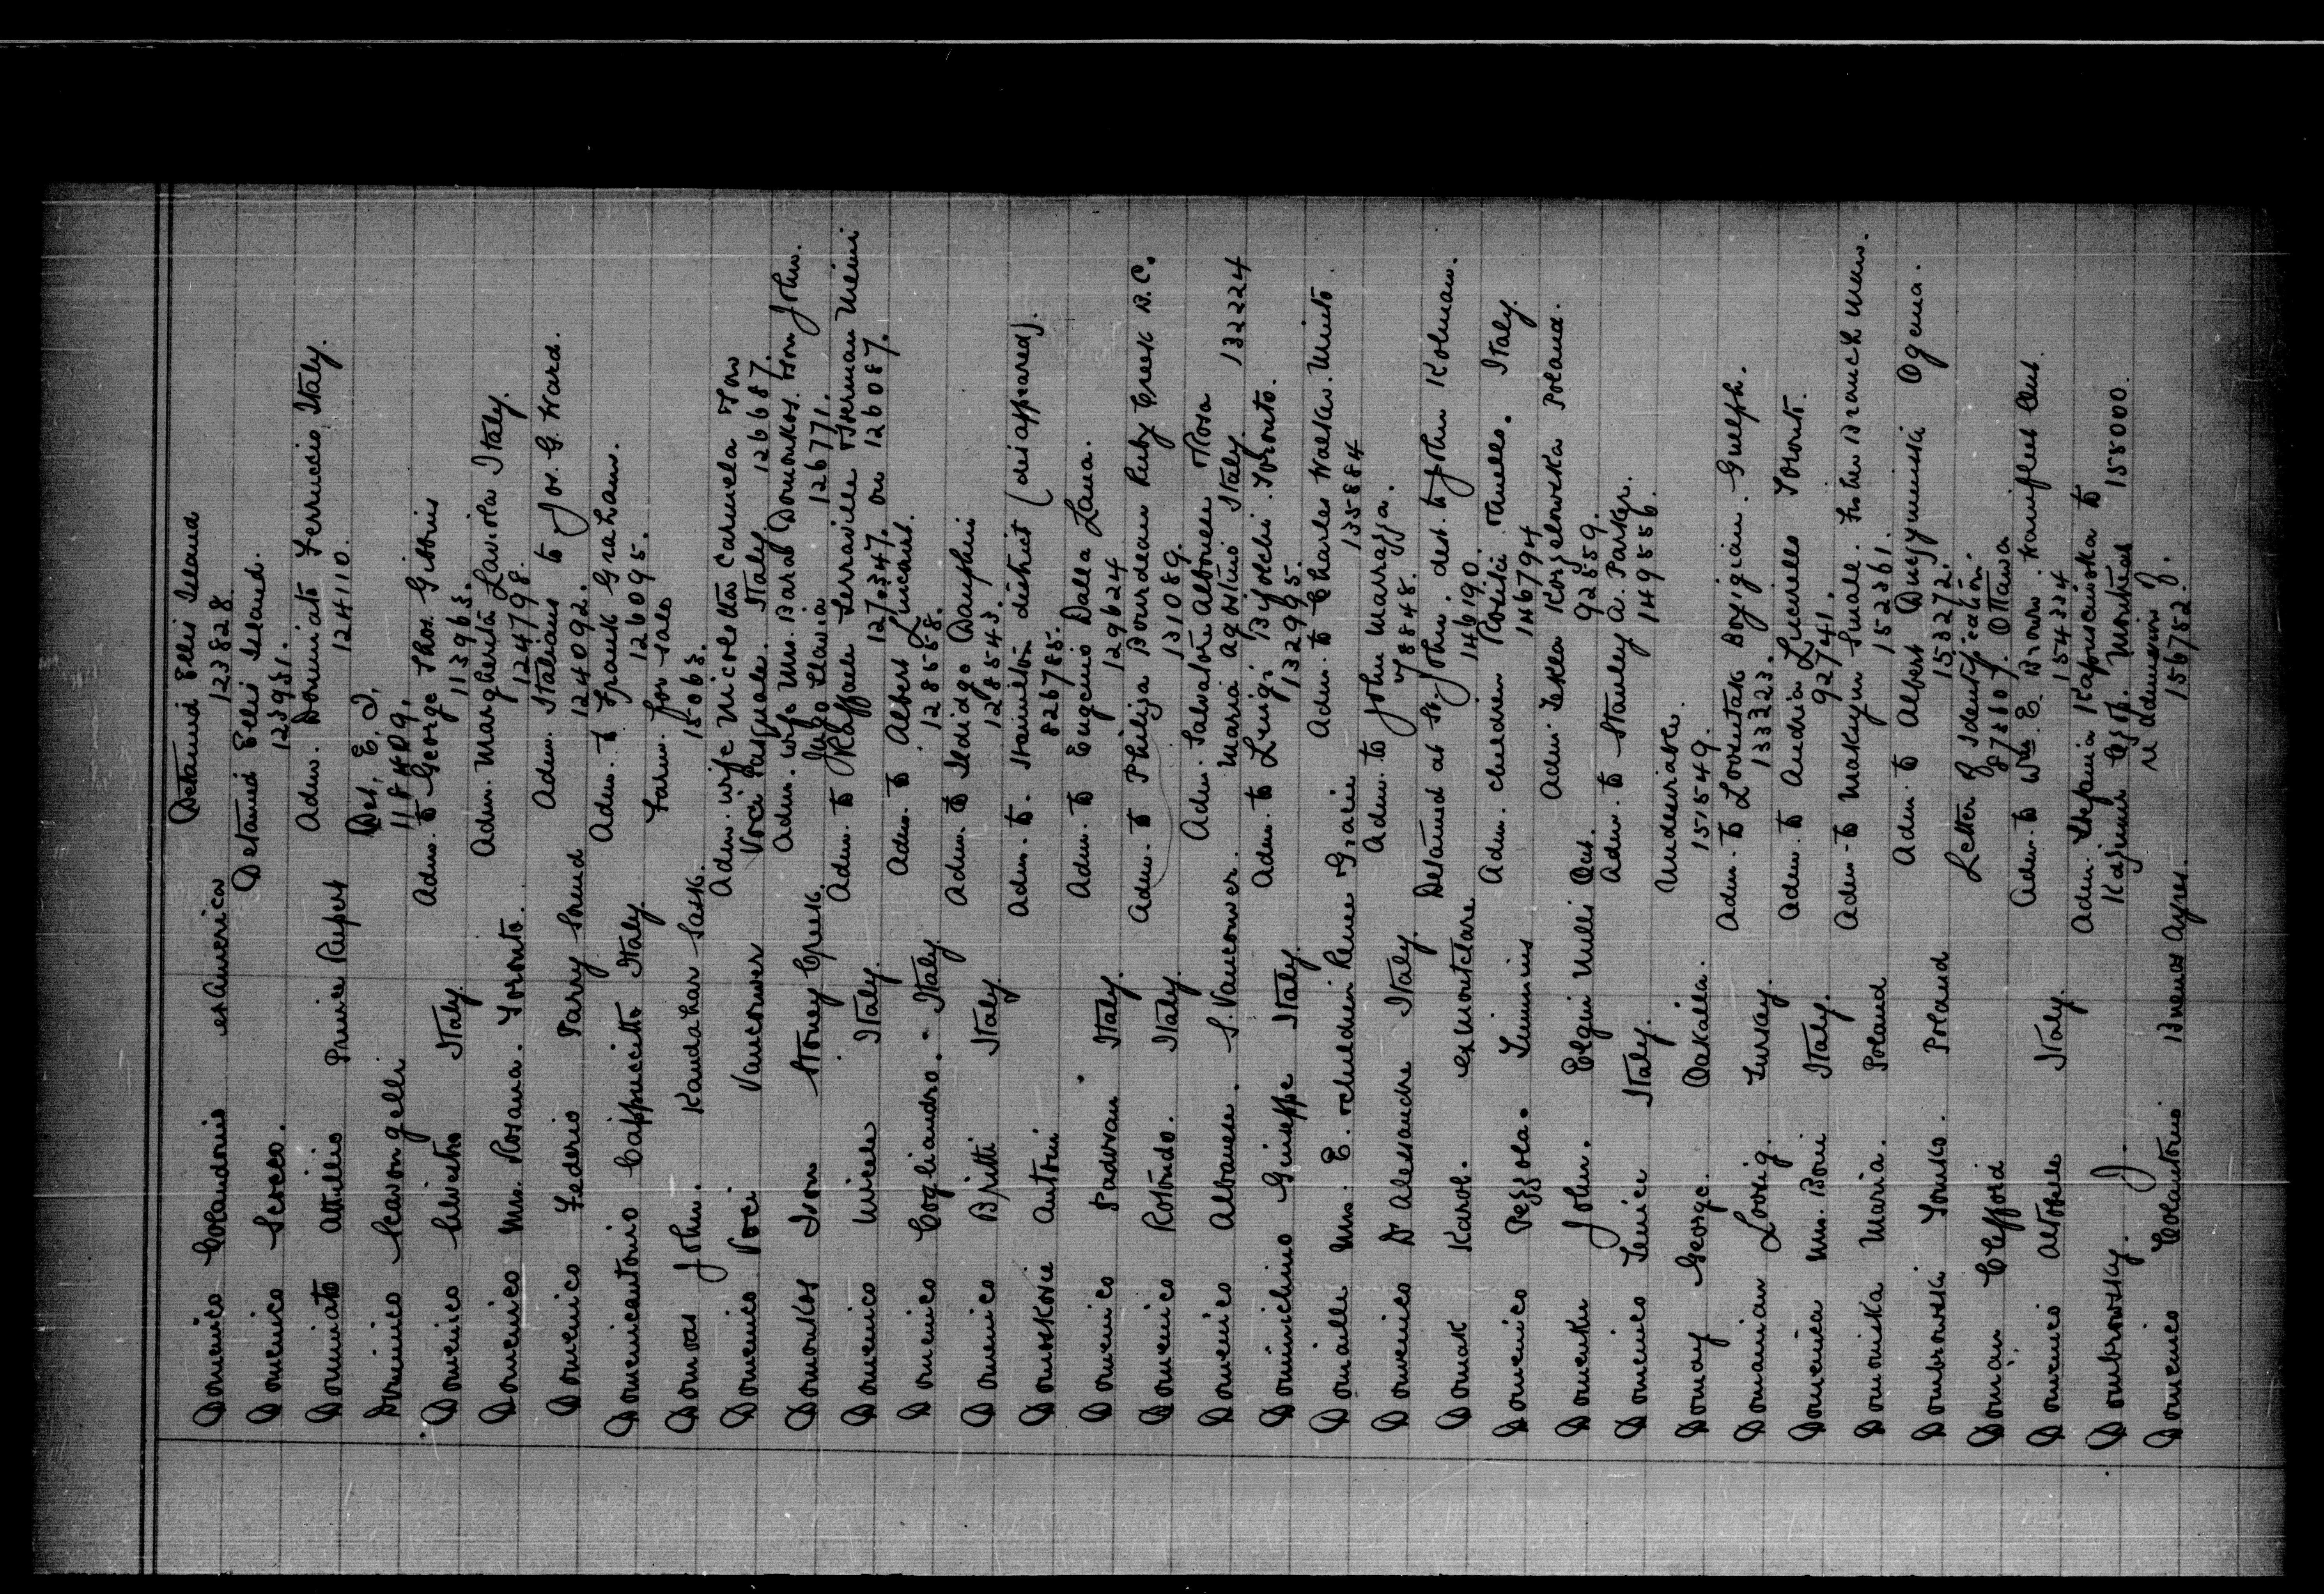 Domenico Colandonio ex America Detained Ellis Island
123828
Domenico Scocco. Detained Ellis Island.
123951.
Dominiato Attilio Prince Rupert Adm. Dominiato Ferruccio Italy.
124110.
Dominico Scavongelli Det. E. I.
118409.
Domenico Silvestro Italy. Adm. to George Thos. Gibbins
113963.
Domenico Mrs. Rosana. Toronto. Adm. Margherita Laviola Italy.
124798.
Domenico Federio Parry Sound Adm. Italians to Jos. G. Ward.
124092.
Domenicantonio Cappuccitti Italy Adm. to Frank Graham.
126095.
Domovas John. Kandahar Sask. Farm for sale
15063.
Domenico Voci Vancouver Adm. wife Nicoletta Carmela Tow
Voci Pasquale. Italy. 126687.
Domonkos Iron Stoney Creek. Adm. wife Mrs. Barab Domonkos. son John.
126771.
Domenico Micele Italy. Adm. to Raffaele Terraville Sherman Mini
127347. on 126087.
Domenico Cogliandro. - Italy. Adm. to Albert Lincard.
128558.
Domenico Britti Italy Adm. to Ildidgo Dauphin
128543.
Domoskovie Antoni Adm. to. Hamilton district (disappeared).
826785.
Domenico Padovan Italy. Adm. to Eugenio Dalla Zana.
129624
Domenico Rotondo. Italy. Adm. to Philija Bourdeau Ruby Creek B.C.
131089.
Domenico Albanese. S. Vancouver. Adm. Salvatore Albonese Rosa
Maria Agostino Italy. 132224
Dominichino Giuseppe Italy. Adm. to Luigi Bifolchi. Toronto.
132995.
Domaille Mrs. E. & children Renee Gracie Adm. to Charles Walker. Minto.
135884
Domenico D Alessandre Italy. Adm. to John Marrazza.
78848.
Domak Karol. ex Montclare Detained at St. John. dest. to John Kolman.
146190.
Domenico Pezzola. Timmins Adm. children Italy.
146794
Domenku John. Elgin Mills Ont. Adm. Tekla Kozzelowska Poland.
92559.
Domenico Lenice Italy. Adm. to Stanley A. Parker.
149556.
Domay George. Oakalla. Undesirable.
151549.
Domanian Lovrig. Turkey. Adm. to Loventak Boyigian. Guelph.
133223.
Domenica Mrs. Boni Italy. Adm. to Andria Lucarello Toronto.
92741.
Domoniska Maria. Poland Adm. to Maksym Smale. Fisher Branch Man.
152361.
Dombrowski Tomko. Poland Adm. to Albert Duszyminski Ogema.
153272.
Domian Clifford Letter of Identification.
Ottawa
Domenico Altobelli Italy. Adm. to Wm. E. Brown. Wainfleet Ont.
154334
Dombrowsky. J. Adm. Stefania Kapuscinska to
Kazimir Montreal 155000.
Domenico Colantonio Buenos Ayres. re admission of.
156752.